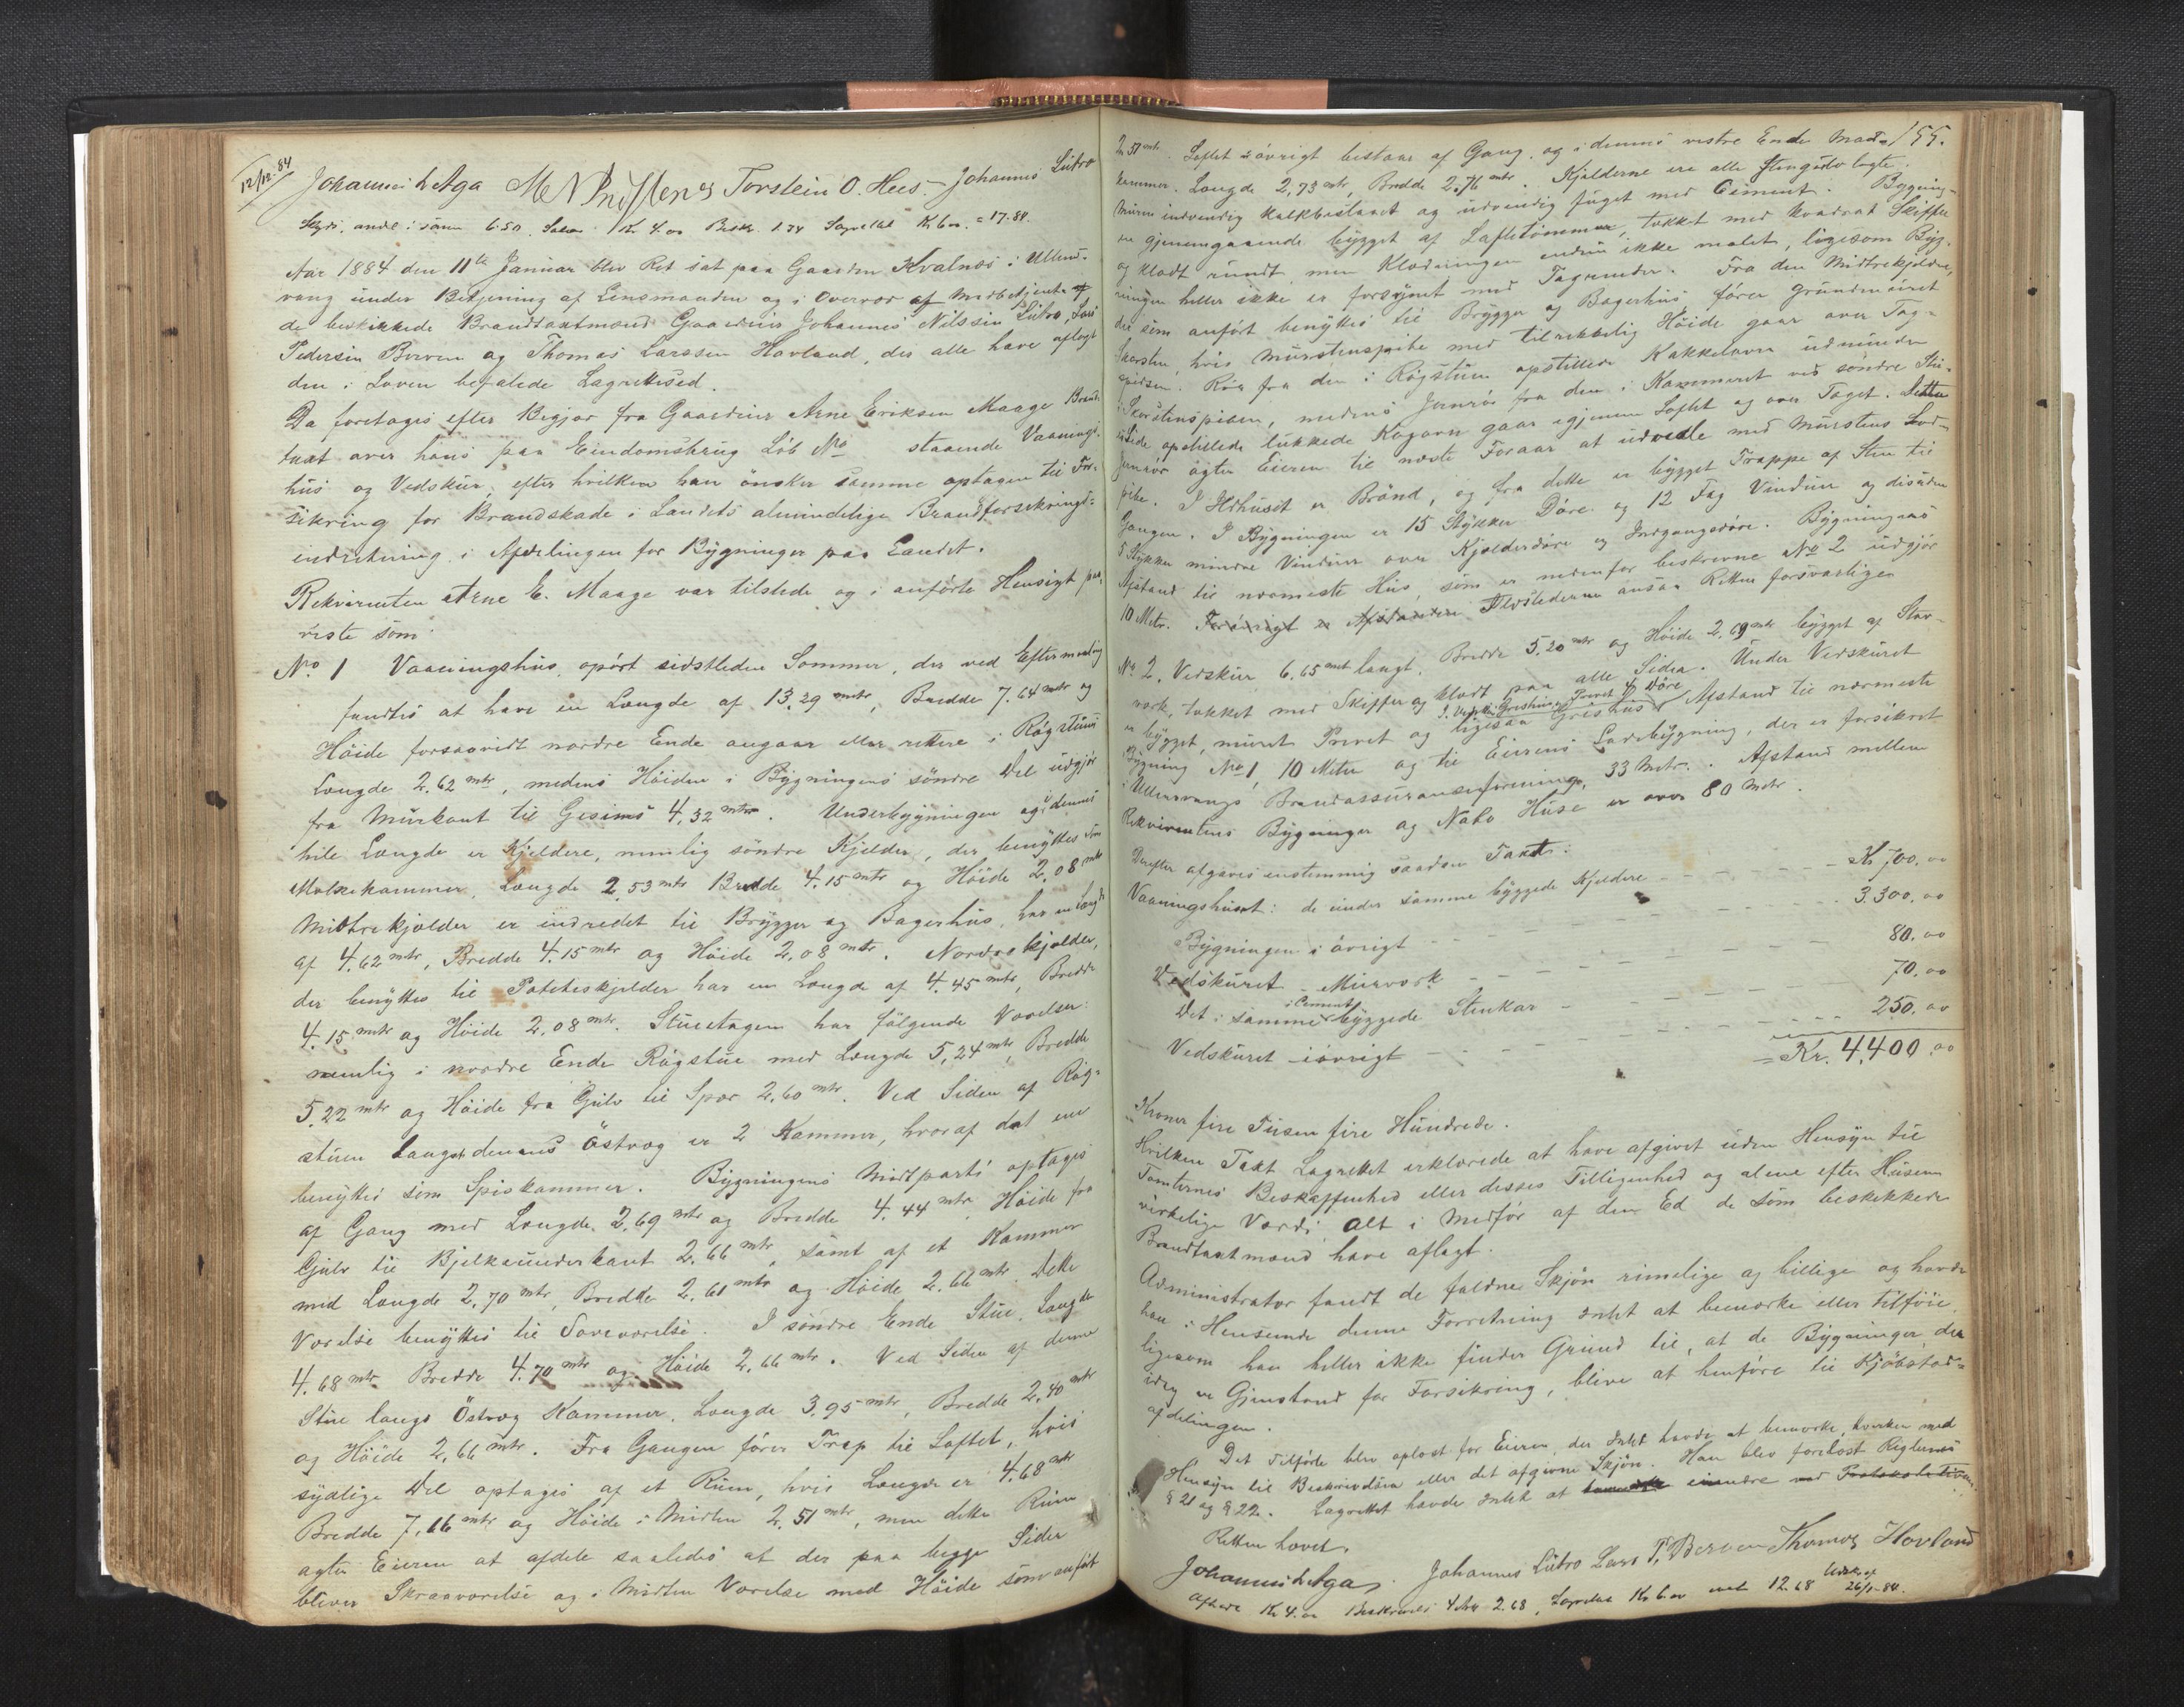 12/12-84
Johannes L Aga Torstein O. Hus. Johannes Lütro
Skyds. andl. i sönn 6.50. Kr 4.00 Beskr. 1.74 Kr 6.00 = 17.84.
Aar 1884 den 11te Januar blev Ret sat paa Gaarden Kvalnæs i Ullens-
vang under Betjening af Lensmanden og i Overvær af Medbetjente
de beskikkede Brandtaxtmænd Gaardene Johannes Nilssen Lütro, Lars
Pedersen Berven og Thomas Larssen Hovland, der alle have aflagt
den i Loven befalede Lagrettesed.
Da foretages efter Begjær fra Gaardmr Arne Eriksen Maage Brand-
taxt over hans paa Eiendomsbrug Löb No staaende Vaanings-
hus og Vedskur, efter hvilken han önsker samme optagen til For-
sikring for Brandskade i Landets almindelige Brandforsikrings-
indretning i Afdelingen for Bygninger paa Landet.
Rekvirenten Arne E. Maage var tilstede og i anförte Hensigt paa-
viste som
No 1 Vaaningshus, opfört sidstleden Sommer, der ved Eftermaaling
fandtes at have en Længde af 13,29 mtr, Bredde 7,64 mtr og
Höide forsaavidt nordre Ende angaar eller rettere i Rögstuens
Længde 2,62 mtr, medens Höiden i Bygningens söndre Del udgjör
fra Murkant til Gesims 4,32 mtr. Underbygningen og i dennes
hele Længde er Kjeldere, nemlig söndre Kjelder, der benyttes som
Melkekammer, Længde 2,53 mtr Bredde 4,15 mtr og Höide 2,08 mtr
Midtrekjælder er indredet til Brygge og Bagerhus, har en Længde
af 4,62 mtr, Bredde 4,15 mtr og Höide 2,08 mtr. Nordre kjelder,
der benyttes til Poteteskjelder har en Længde af 4,45 mtr, Bredde
4,15 mtr og Höide 2,08 mtr. Stueetagen har fölgende Værelser:
nemlig i nordre Ende Rögstue med Længde 5,24 mtr, Bredde
5,22 mtr og Höide fra Gulv til Spær 2,60 mtr. Ved Siden af Rög-
stuen langs dennes Östvæg er 2 Kammer, hvoraf det ene
benyttes som Spiskammer. Bygningens Midtparti optages
af Gang med Længde 2,69 mtr og Bredde 4,44 mtr, Höide fra
Gulv til Bjelkeunderkant 2,66 mtr, samt af et Kammer
med Længde 2,70 mtr, Bredde 2,61 mtr og Höide 2,66 mtr. Dette
Værelse benyttes til Soveværelse. I söndre Ende Stue, Længde
4,68 mtr Bredde 4,70 mtr og Höide 2,66 mtr. Ved Siden af denne
Stue langs Östvæg Kammer, Længde 3,95 mtr, Bredde 2,40 mtr
og Höide 2,66 mtr. Fra Gangen förer Trap til Loftet, hvis
sydlige Del optages af et Rum, hvis Længde er 4,68 mtr
Bredde 7,16 mtr og Höide i Midten 2,51 mtr, men dette Rum
agter Eieren at afdele saaledes at der paa begge Sider
bliver Skraaværelse og i Midten Værelse med Höide som anfört
155.
2,51 mtr. Loftet iövrigt bestaar af Gang, og i dennes vestre Ende Mad-
kammer. Længde 2,73 mtr, Bredde 2,76 mtr. Kjelderne ere alle Stengulv lagte.
Murene indvendig kalkbeslaaet og udvendig fuget med Cement. Bygning-
en gjennemgaaende bygget af Laftetömmer, tækket med kvadrat Skiffer
og klædt rundt, men Klædningen endnu ikke malet, ligesom Byg-
ningen heller ikke er forsynet med Tagrender. Fra den Midtrekjelder,
der som anfört benyttes til Brygge og Bagerhus, förer grundmuret
Skorsten, hvis Murstenspibe med tilrekkelig Höide gaar over Tag-
spidsen. Rör fra den i Rögstuen opstillede Kakkelovn udmunder
i Skorstenspiben, medens Jernrör fra den i Kammeret ved söndre Stu-
es Side opstillede lukkede Kogeovn gaar igjennem Loftet og over Taget. Dette
Jernrör agter Eieren til næste Foraar at udvexle med Murstens Jord-
pibe. I Ildhuset er Brönd, og fra dette er bygget Trappe af Sten til
Gangen. I Bygningen er 15 Stykker Döre og 12 Fag Vinduer og desuden
5 Stykker mindre Vinduer over Kjelderdöre og Indgangsdöre. Bygningens
Afstand til nærmeste Hus, som er nedenfor beskrevne No 2 udgjör
10 Metr. Forövrigt er Afstanden Ildstederne ansaa Retten forsvarlige
No 2. Vedskur 6,65 mtr langt, Bredde 5,20 mtr og Höide 2,69 mtr bygget af Stav-
værk, tækket med Skiffer og klædt paa alle Sider. Under Vedskuret
I. Vedsk. Grishus, Privet 4 Döre
er bygget, muret Privet og ligesaa Grishus. Afstand til nærmeste
Bygning No 1 10 Meter og til Eierens Ladebygning, der er forsikret
i Ullensvangs Brandassuranceforening, 33 Metr. Afstand mellem
Rekvirentens Bygninger og Nabo Huse er over 80 Metr.
Derefter afgaves enstemmig saadan Taxt:
Vaaningshuset: de under samme byggede Kjeldere - Kr 700,00
Bygningen i övrigt - 3.300,00
Vedskuret - Murværk - 80,00
Det i samme i Cement byggede Stenkar - 70,00
Vedskuret iövrigt - 250,00
= Kr. 4.400,00
Kroner fire Tusen fire Hundrede.
Hvilken Taxt Lagrettet erklærede at have afgivet uden Hensyn til
Tomternes Beskaffenhed eller desses Tilligenhed og alene efter Husenes
virkelige Værdi alt i Medför af den Ed de som beskikkede
Brandtaxtmænd have aflagt.
Administrator fandt de faldne Skjön rimelige og billige og havde
han i Henseende denne Forretning intet at bemærke eller tilföie
ligesom han heller ikke finder Grund til, at de Bygninger der
idag er Gjenstand for Forsikring, blive at henföre til Kjöbstad-
afdelingen.
Det Tilförte blev oplæst for Eieren, der intet havde at bemærke, hverken med
Hensyn til Beskrivelsen eller det afgivne Skjön. Han blev forelæst Reglernes
§ 21 og § 22. Lagrettet havde intet at erindre
Retten hævet.
Johannes L Aga. Johannes Lütro Lars P. Berven Thomas Hovland
Kr 4.00 2.68, Kr 6.00 12.68 Udsk. af 26/1-84.